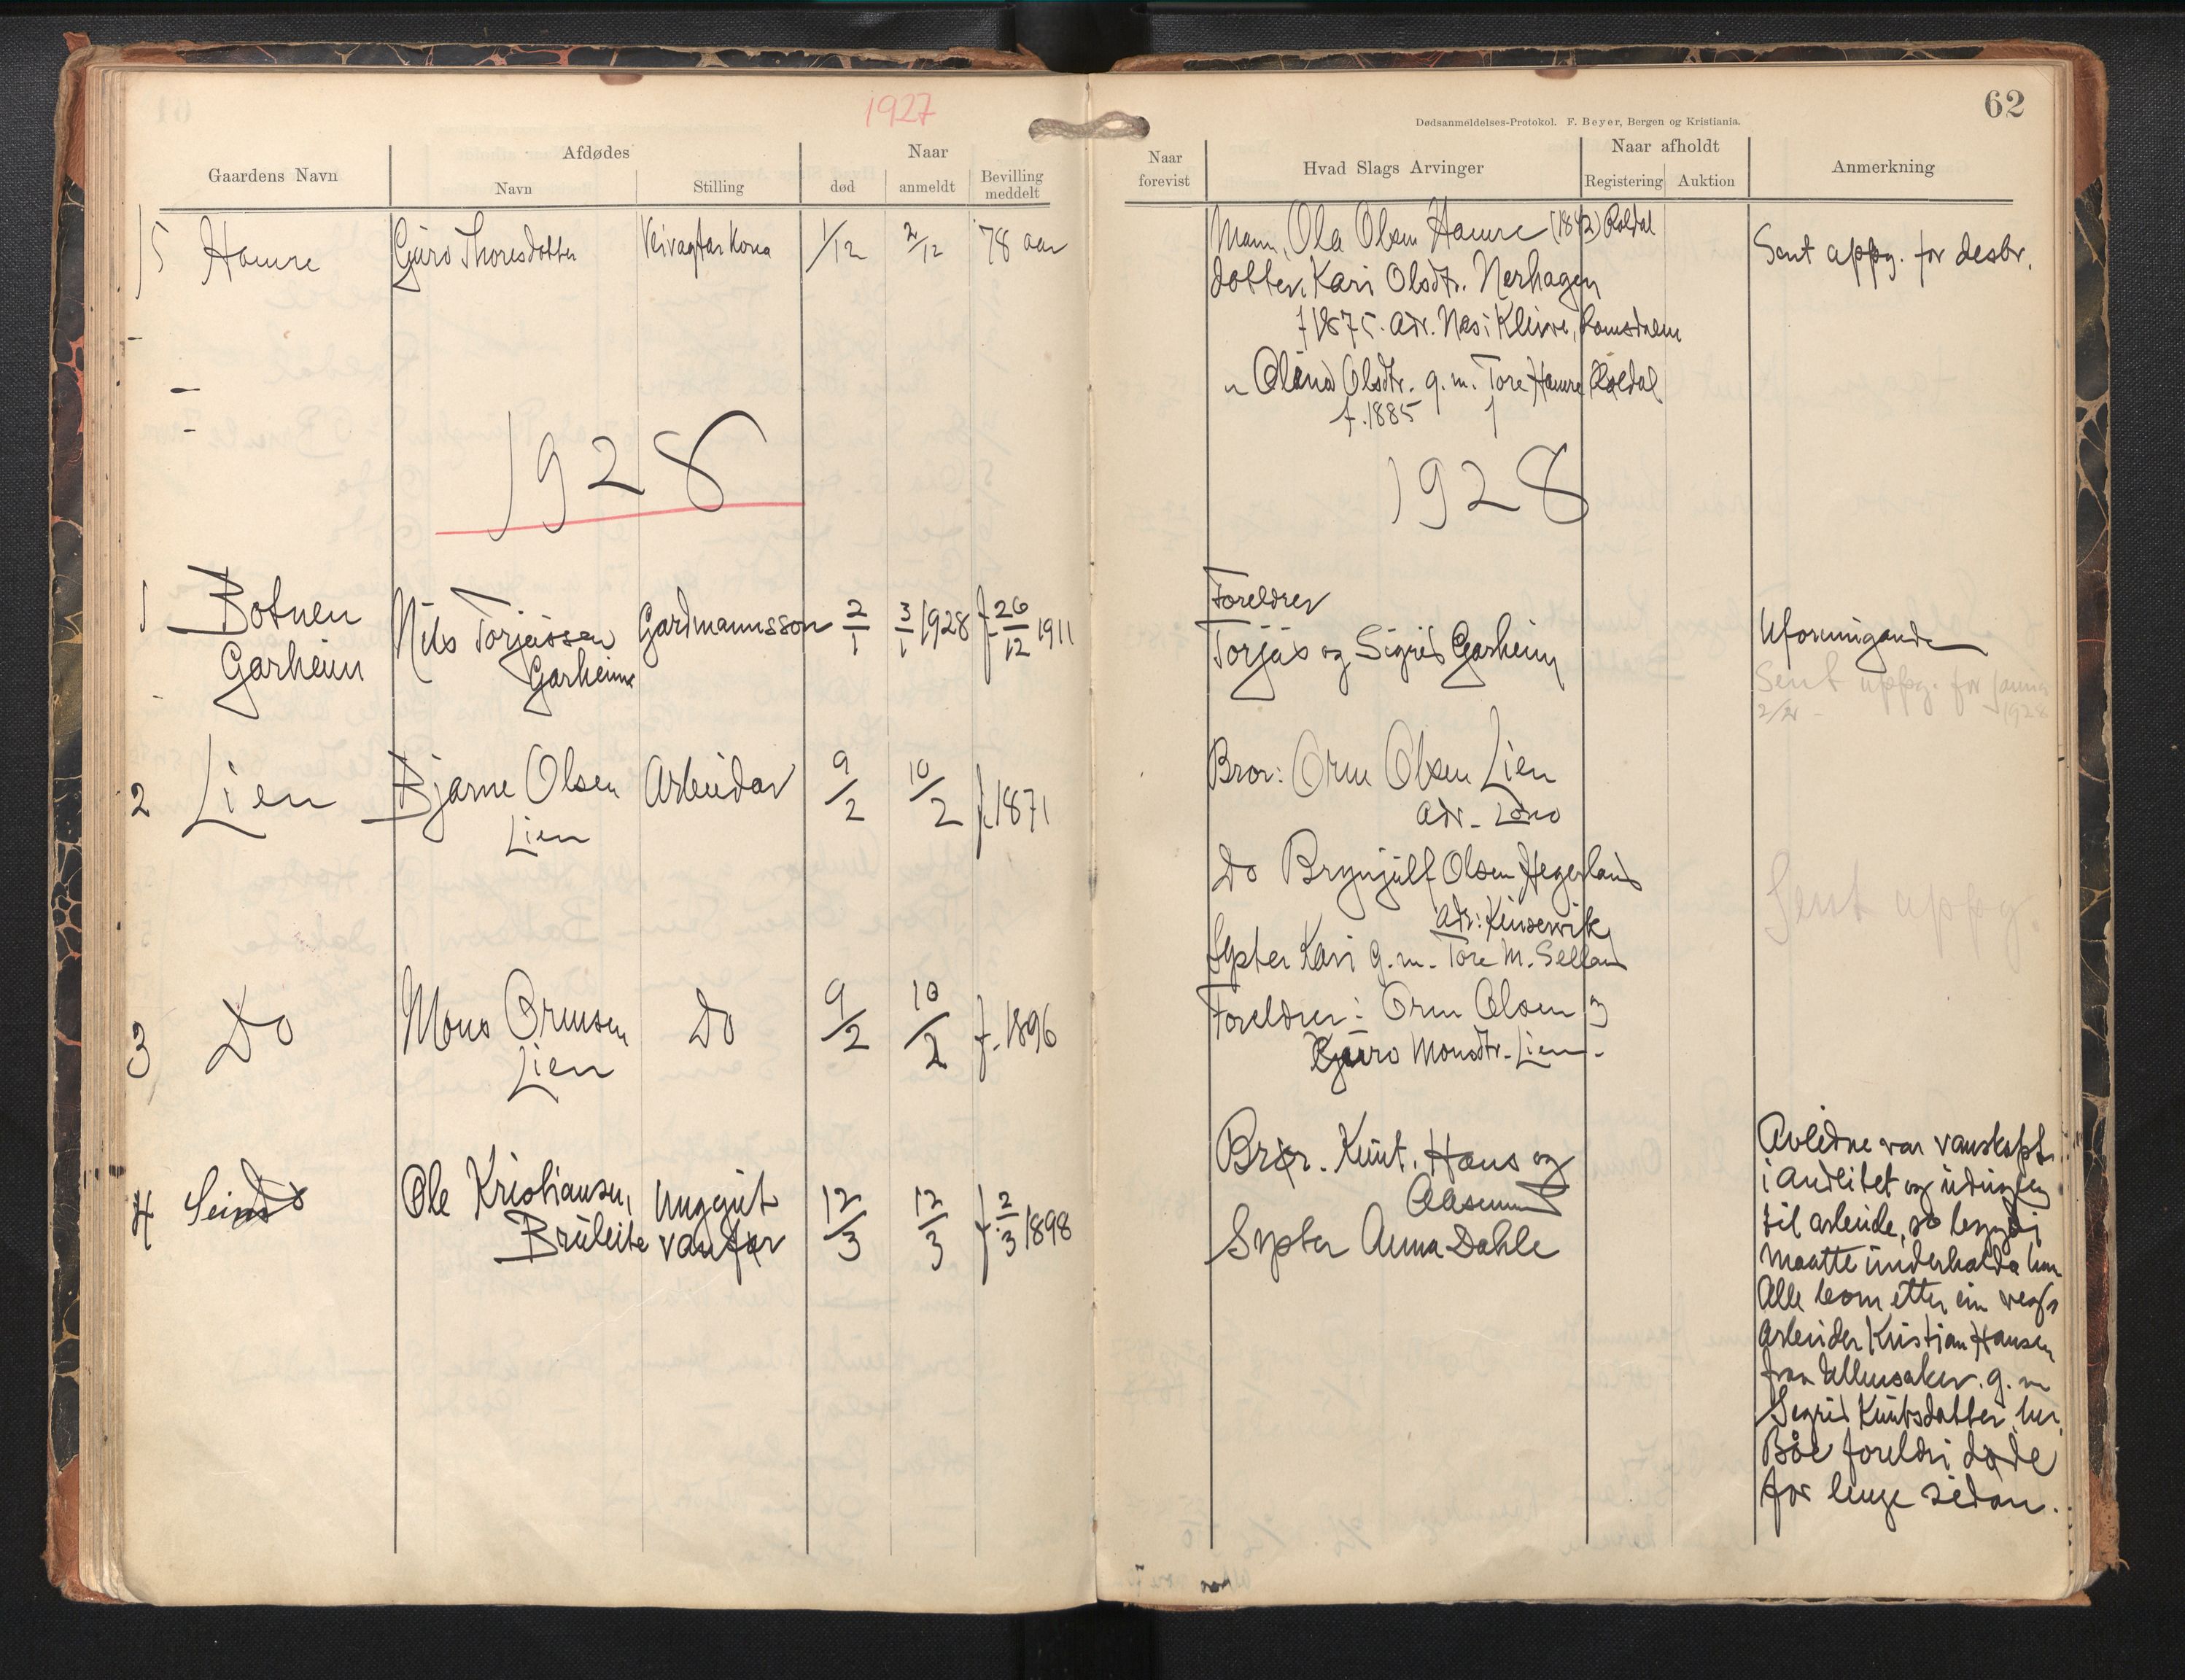 1927
62
Dødsanmeldelses-Protokol. F. Beyer, Bergen og Kristiania.
Gaardens Navn
Afdødes
Navn
Stilling
Naar
død
anmeldt
Bevilling meddelt
Naar forevist
Hvad Slags Arvinger
Naar afholdt
Registering
Auktion
Anmerkning
5 Hamre Guro Thoresdotter Veivagtar Kona 1/12 2/12 78 aar
Mann, Ola Olsen Hamre (1842) Røldal
dotter, Kari Olsdtr. Nerhagen
f 1875. adr. Næs i Kleive, Romsdalen
" Olina Olsdtr. g. m. Tore Hamre Røldal
f. 1885
Sent uppg. for desbr.
1928
1928
1 Botnen
Garheim
Nils Torjussen
Garheim
Gardmannsson 2/1 3/1 1928 f 26/12 1911
Foreldrer
Torjus og Sigrid Garheim
Uformugande
Sent uppg. for januar
2/2 - 1928
2 Lien Bjarne Olsen
Lien
Arbeidar 9/2 10/2 f. 1871
Bror: Orm Olsen Lien
adr.
Do Brynjulf Olsen Hegerland
adr: Kinservik
Syster Kari g. m. Tore M. Selland
Sent uppg.
3 Do Mons Ormsen
Lien
Do 9/2 10/2 f. 1896
Foreldrer: Orm Olsen og
Guro Monsdtr. Lien.
4 Ole Kristiansen,
Bruleite
Unggut
vanfør
12/3 12/3 f. 2/3 1898
Brør. Knut, Hans og
Aasmund
Syster Anna Dahle
Avlidne var vanskapt
i andlitet og udugleg
til arbeide, so bygdi
maatte underhalda han
Alle born etter ein
Arbeider Kristian Hansen
fraa Ullensaker. g. m
Sigrid Knutsdotter her.
Båe foreldri døde
for lenge sidan.